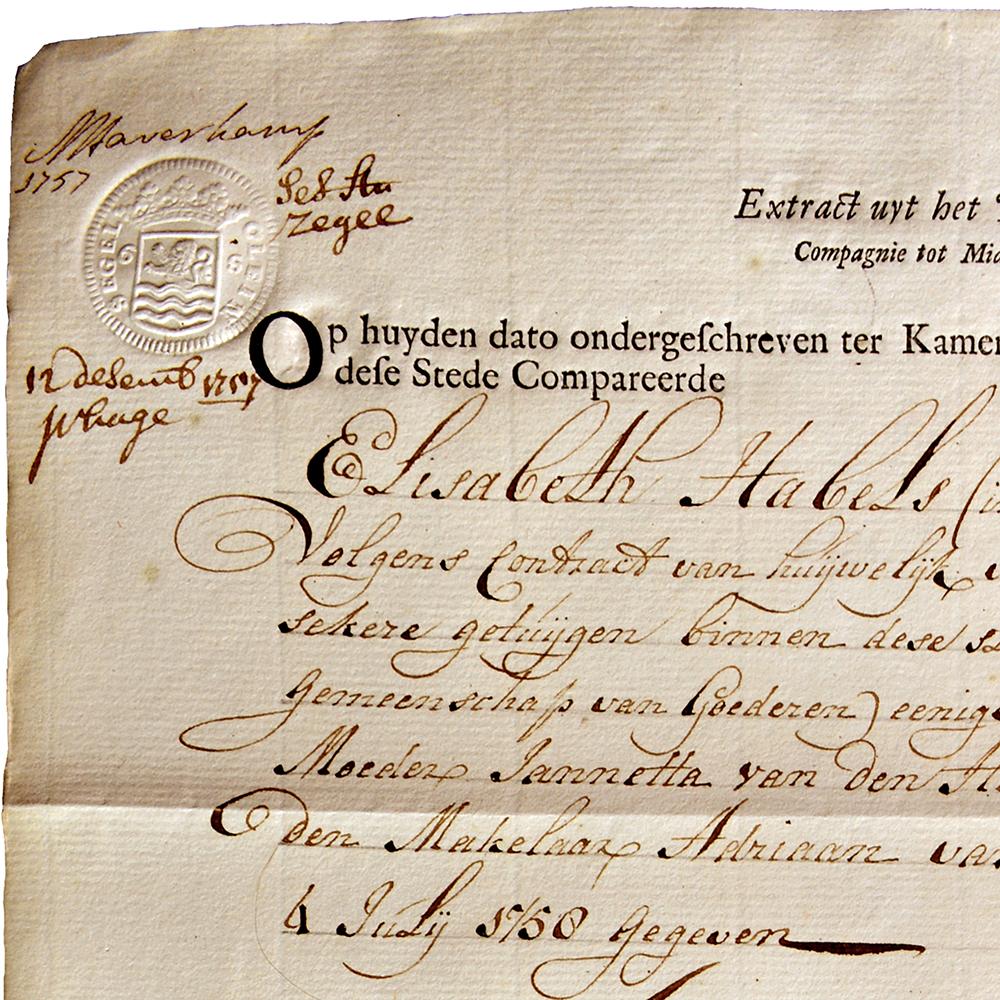 AHaverkamp
1757
Ses Stu
Zegel
SEGEL KLEIN
6 S
12 desemb 1757
Extract uyt het
Compagnie tot Mid
Op huyden dato ondergeſchreven ter Kamer
deſe Stede Compareerde
Elisabeth Habels (
Volgens Contract van huijwelijk
sekere getuijgen binnen dese
Gemeenschap van Goederen) eenig
Moeder Jannetta van den
den Makelaar Adriaan van
4 Julij 1758 Gegeven